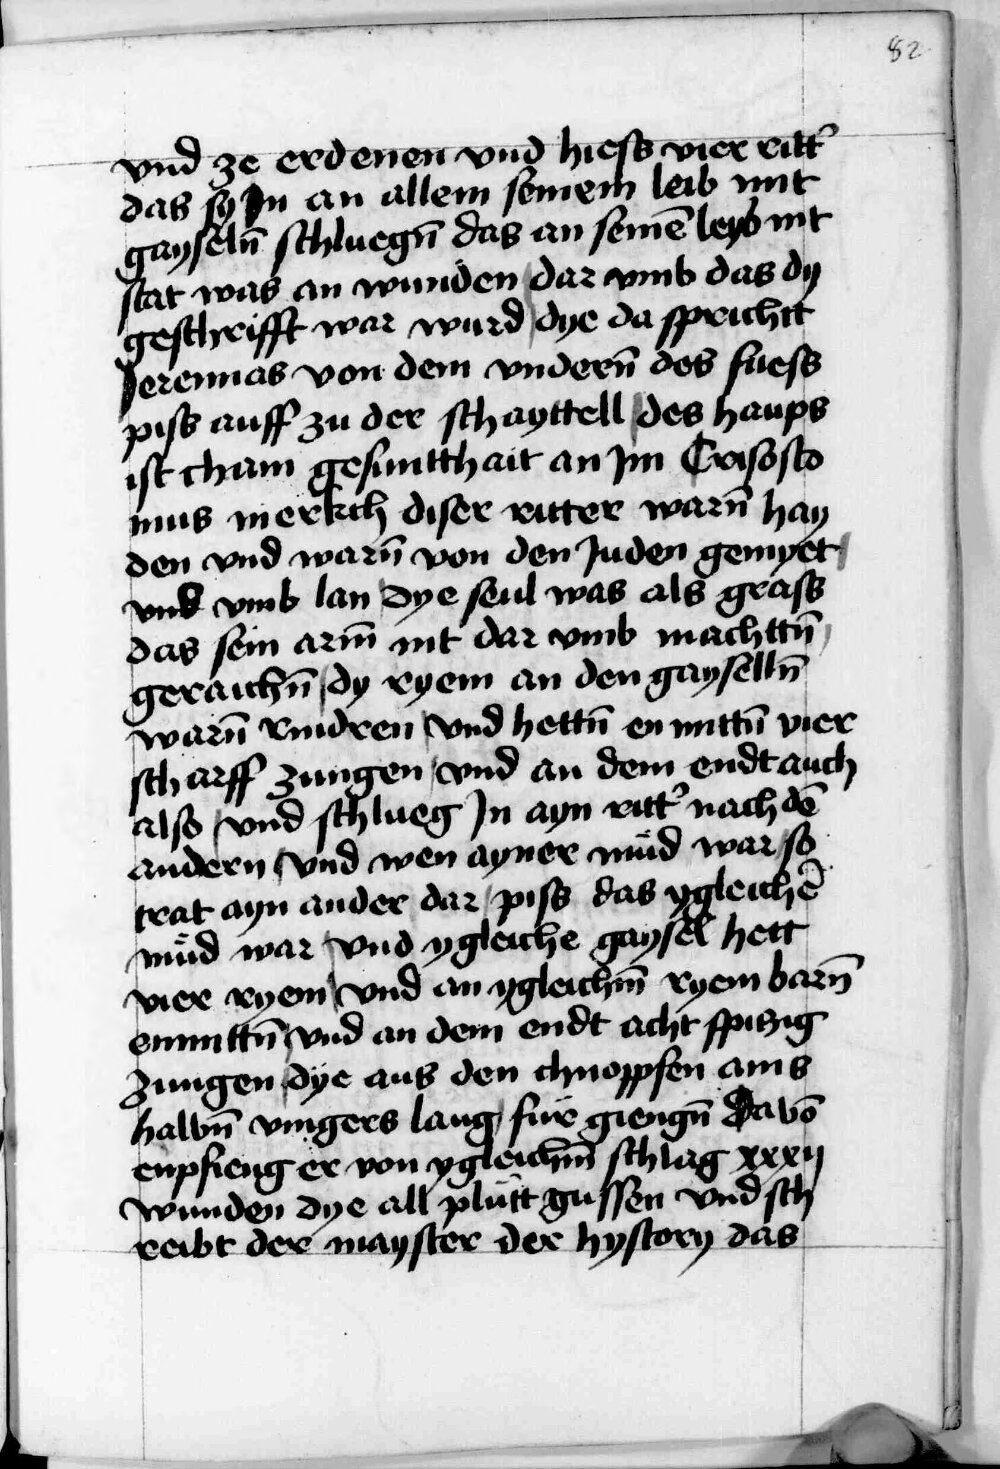 82
vnd ze erdenen vnd hiess vier ritt᾽
das sy Jn an allem seinem leib mit
gayseln̄ schluegn̄ das an seinē leyb nit
stat was an wunden / dar vmb das dy
geschrifft war wurd / dye da sprichtt
Jeremias von dem vndern̄ des fuess
piss auff zu der schayttell / des haups
ist cham gesuntthait an Jm Crisosto
mus merkch diser ritter warn̄ hay
den vnd warn̄ von den Juden gemyet /
vnd vmb lan / dye seul was als grass
das sein arm̄ nit dar vmb machttn̄ /
geraichn̄ / dy ryem an den gayselln̄
warn̄ rindren / vnd hettn̄ en mittn̄ vier
scharff zungen / vnd an dem endt auch
also / vnd schlueg Jn ayn ritt᾽ nach dē
andern / vnd wen ayner müd war / so
trat ayn ander dar / piss das ygleichē
müd war / vnd ygleiche gaysel hett
vier ryem / vnd an ygleichm̄ ryem barn̄
enmittn̄ / vnd an dem endt acht spitzig
zungen / dye aus den chnoppfen ains
halbn̄ vingers lang / für giengn̄ Da vō
enpfieng er von ygleichm̄ schlag xxxij
wunden dye all plütt gussen vnd sch
reibt der mayster der hystory das